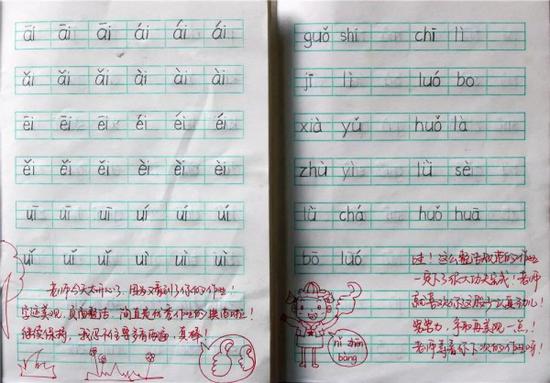 āi āi āi ái ái ái
ǎi ǎi ǎi ài ài ài
ēi ēi ēi éi éi éi
ěi ěi ěi èi èi èi
uī uī uī uí uí uí
uǐ uǐ uǐ uì uì uì
老师今天太开心了,因为又看到了你的作业!
字迹美观,页面整洁,简直是优秀作业的典范啦!
继续保持,我忍不住要多看两遍,真棒!
guǒ shí chī lì
jī lì luó bo
xià yǔ huǒ là
zhù yì lǜ sè
lǜ chá huǒ huā
bō luó
哇!这么整洁规范的作业
一定下了你大功夫完成!老师
就喜欢你这股子认真劲儿!
努力,争取再美观一点!
老师等着你下次的作业呀!
nǐ zhēn
bàng